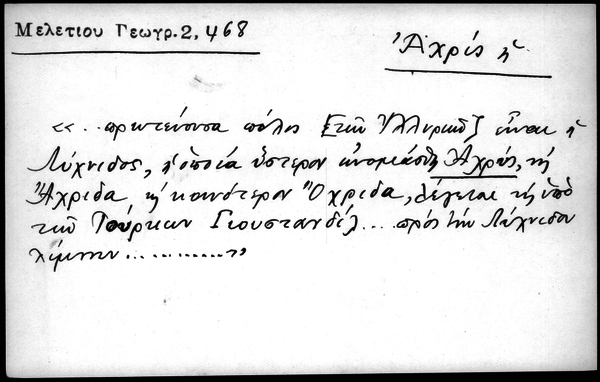 Μελετίου Γεωγρ. 2, 468
Ἀχρίς ἡ
«... πρωτεύουσα πόλις [τῶν Ἰλλυρικῶν] εἶναι ἡ
Λύχνιδος, ἡ ὁποία ὕστερον ὠνομάσθη Ἀχρίς, κὴ
Ἄχριδα, κὴ κοινότερον Ὄχριδα, λέγεται κὴ ὑπὸ
τῶν Τούρκων Γιουσταντίλ ... πρὸς τὴν Λύχνιδον
λίμνην ............»